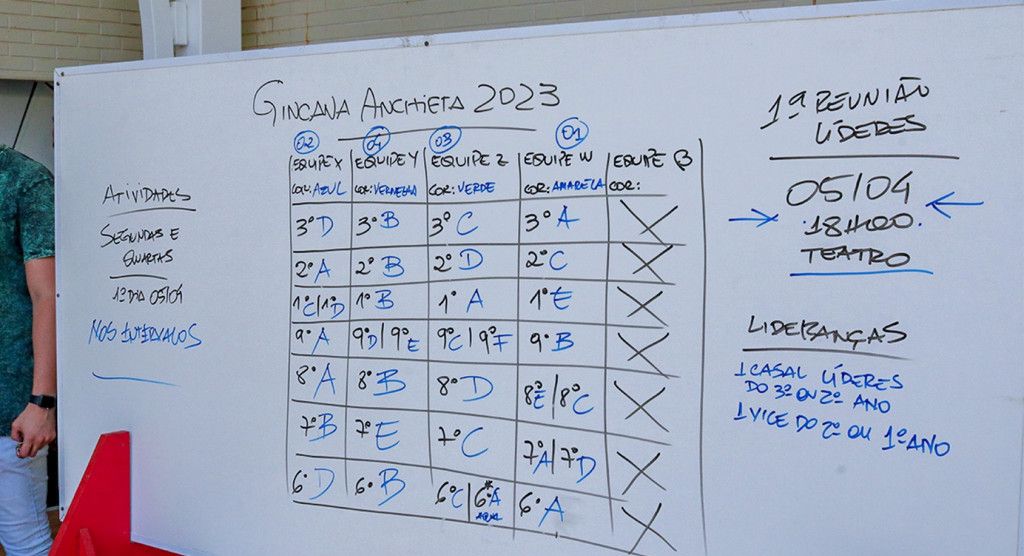 GINCANA ANCHIETA 2023
02 04 03 01
EQUIPE X EQUIPE Y EQUIPE Z EQUIPE W EQUIPE β
COR: AZUL COR: VERMELHA COR: VERDE COR: AMARELA COR:
3º D 3º B 3º C 3º A X
2º A 2º B 2º D 2º C X
1ºC/1ºD 1º B 1º A 1º E X
9º A 9ºD/9ºE 9ºC/9ºF 9º B X
8º A 8º B 8º D 8ºE/8ºC X
7º B 7º E 7º C 7ºA/7ºD X
6º D 6º B 6ºC/6ºA* 6º A X
ATIVIDADES
SEGUNDAS E
QUARTAS
1º DIA 05/04
NOS INTERVALOS
1ª REUNIÃO
LÍDERES
05/04
18H00.
TEATRO
LIDERANÇAS
1 CASAL LÍDERES
DO 3º OU 2º ANO
1 VICE DO 2º OU 1º ANO